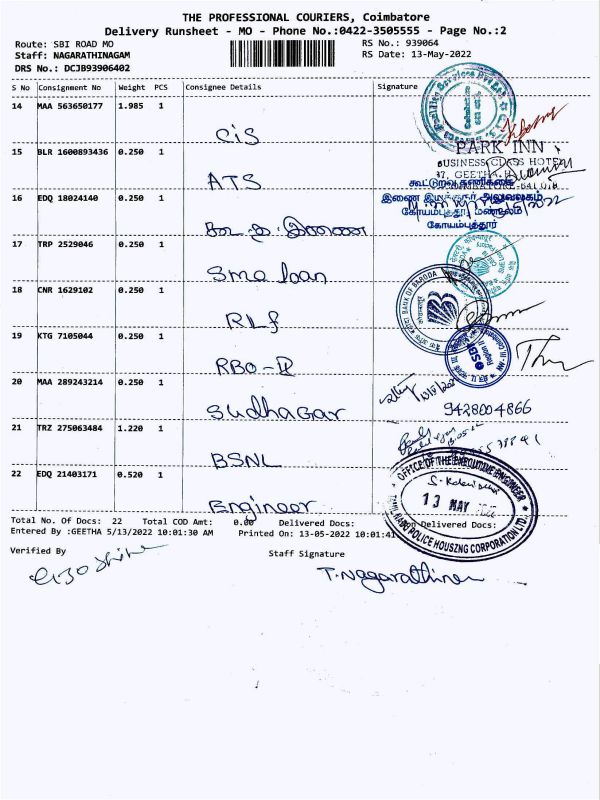 THE PROFESSIONAL COURIERS, Coimbatore
Delivery Runsheet - MO - Phone No.:0422-3505555 - Page No.:2
Route: SBI ROAD MO
RS No.: 939064
Staff: NAGARATHINAGAM
RS Date: 13-May-2022
DRS No.: DCJB93906402
S No Consignment No Weight PCS Consignee Details Signature
14 MAA 563650177 1.985 1
CiS
15 BLR 1600893436 0.250 1
PARK INN
BUSINESS CLASS HOTEL
37, GEETHA
COIMBATORE-641 018
ATS
16 EDQ 18024140 0.250 1
கூட்டுறவு
இணை இயக்குநர் அலுவலகம்
கோயம்புத்தூர் மண்டலம்
கோயம்புத்தூர்
17 TRP 2529046 0.250 1
Sme loan
18 CNR 1629102 0.250 1
BANK OF BARODA
RLf
19 KTG 7105044 0.250 1
SBI
RBO-II
20 MAA 289243214 0.250 1
Sudhagar
9428004866
21 TRZ 275063484 1.220 1
BSNL
22 EDQ 21403171 0.520 1
OFFICE OF THE EXECUTIVE ENGINEER
13 MAY
TAMIL NADU POLICE HOUSING CORPORATION LTD
Engineer
Total No. Of Docs: 22 Total COD Amt: 0.00 Delivered Docs: Non Delivered Docs:
Entered By :GEETHA 5/13/2022 10:01:30 AM Printed On: 13-05-2022 10:01:41
Verified By
Staff Signature
T.Nagarathinam